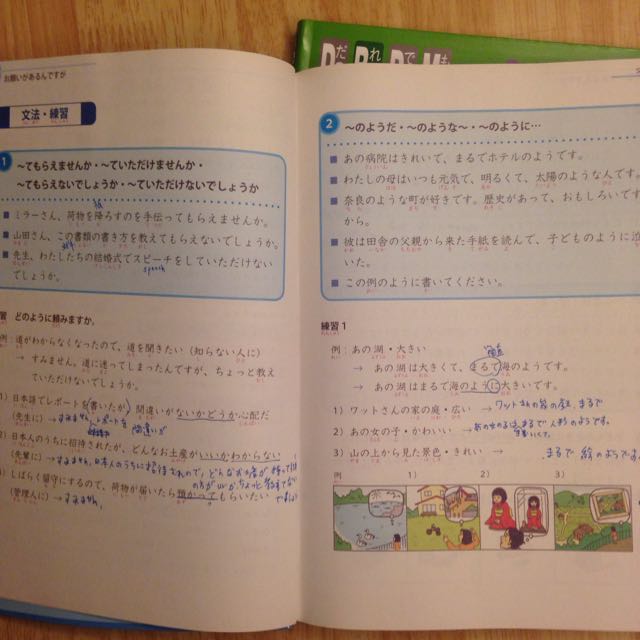 お願いがあるんですが
文法・練習
1
～てもらえませんか・～ていただけませんか・
～てもらえないでしょうか・～ていただけないでしょうか
ミラーさん、荷物を降ろすのを手伝ってもらえませんか。
山田さん、この書類の書き方を教えてもらえないでしょうか。
先生、わたしたちの結婚式でスピーチをしていただけない
speech
でしょうか。
習 どのように頼みますか。
例：道がわからなくなったので、道を聞きたい（知らない人に）
→ すみません。道に迷ってしまったんですが、ちょっと教え
ていただけないでしょうか。
1）日本語でレポートを書いたが、間違いがないかどうか心配だ
（先生に）→ すみません、レポートを
間違いが
）日本人のうちに招待されたが、どんなお土産がいいかわからない
（先輩に）→ すみません、日本人のうちに招待されので、どんなお土産が
）しばらく留守にするので、荷物が届いたら預かってもらいたい
（管理人に）→ すみません、
だれでも
2
～のようだ・～のような～・～のように…
あの病院はきれいで、まるでホテルのようです。
わたしの母はいつも元気で、明るくて、太陽のような人です。
奈良のような町が好きです。歴史があって、おもしろいです
から。
彼は田舎の父親から来た手紙を読んで、子どものように泣
いた。
この例のように書いてください。
練習1
例：あの湖・大きい
→ あの湖は大きくて、まるで海のようです。
→ あの湖はまるで海のように大きいです。
1）ワットさんの家の庭・広い → ワットさんの家の庭、まるで
2）あの女の子・かわいい → あの女の子は、まるで人形のようです。
3）山の上から見た景色・きれい → まるで絵のようです
例 1） 2） 3）